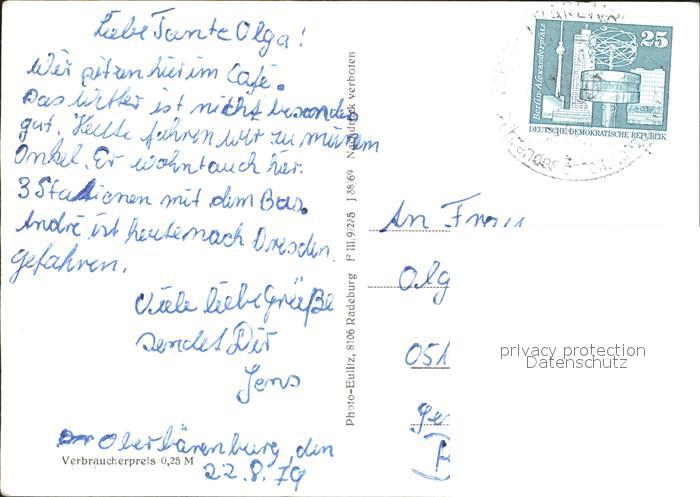 Liebe Tante Olga!
Wir sitzen hier im Café.
Das Wetter ist nicht besonders
gut. Heute fahren wir zu mürem
Onkel. Er wohnt auch hir.
3 Stationen mit dem Bus.
André ist heute nach Dresden
gefahren.
Viele liebe Grüße
sendet Dir
Jens
Oberbärenburg, den
22.8.79
Verbraucherpreis 0,25 M
Photo-Eulitz, 8106 Radeburg F III/9/285 J 38/69 Nachdruck verboten
25
Berlin, Alexanderplatz
DEUTSCHE DEMOKRATISCHE REPUBLIK
An Frau
Olg
051
Ge
B
privacy protection
Datenschutz